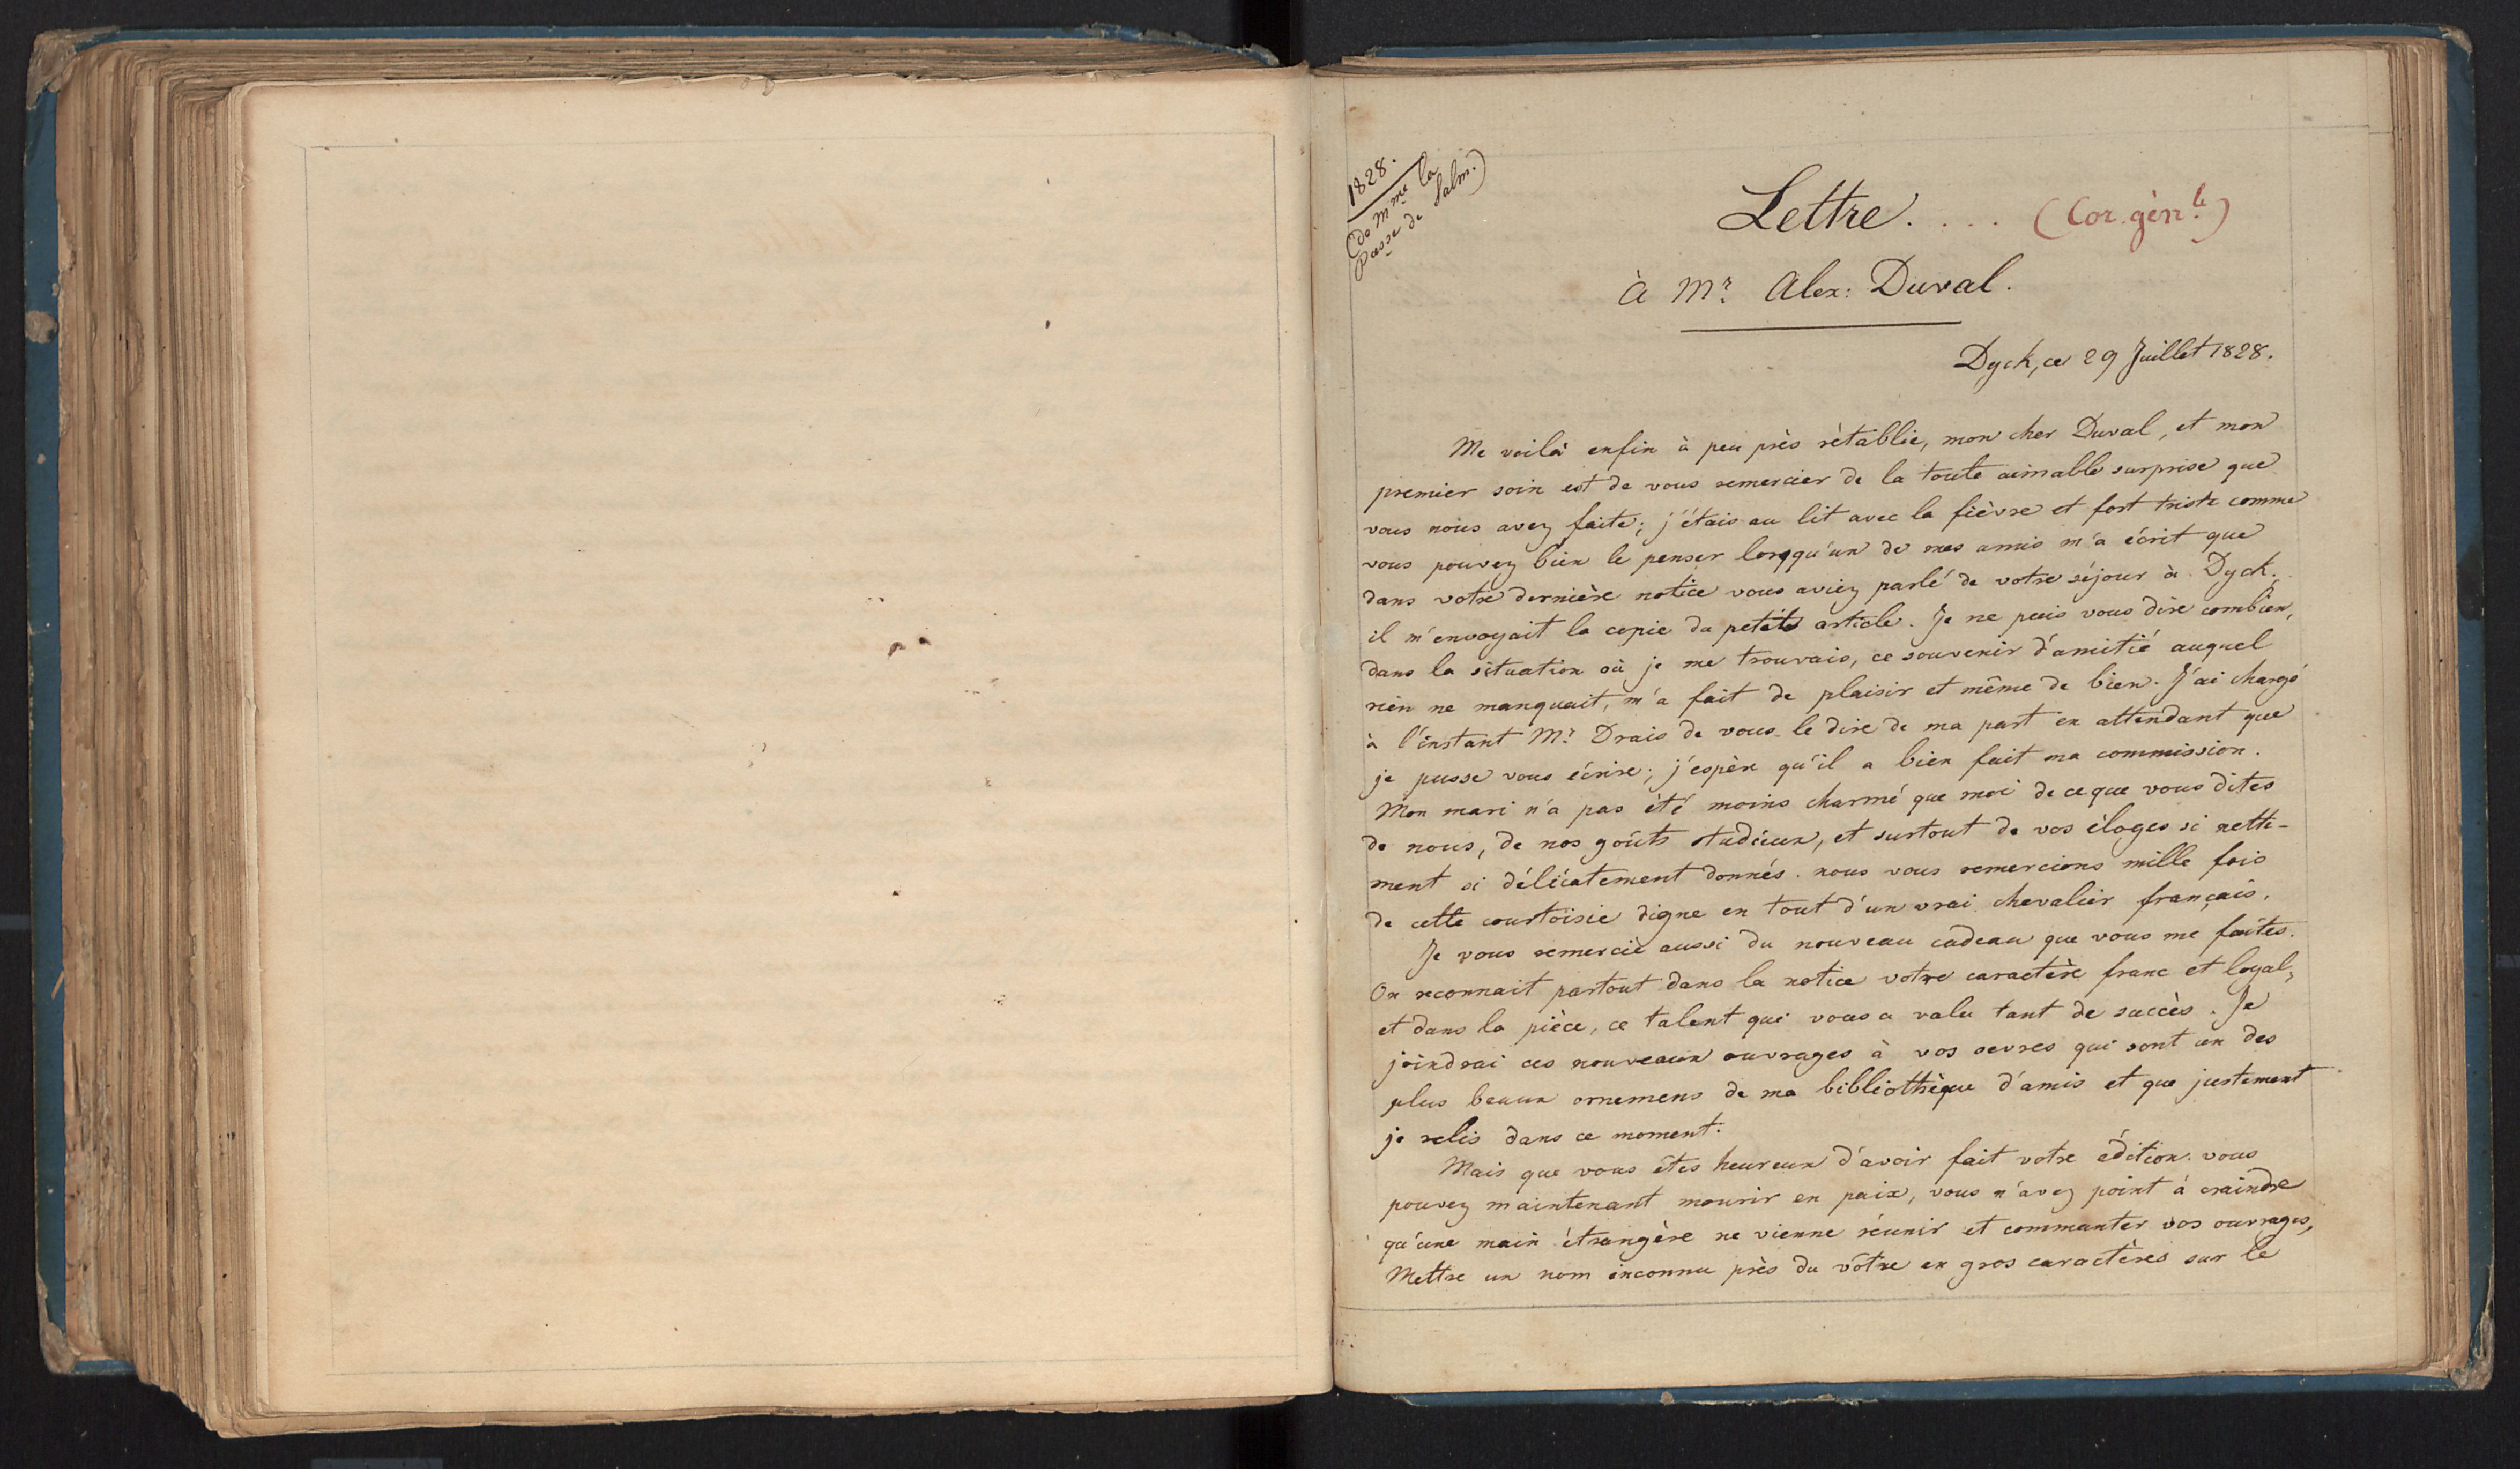 1828.
(de Mme la
Pcesse de Salm.)
Lettre. . . . (Cor. gèn.le)
à Mr. Alex: Duval.
Dyck, ce 29 Juillet 1828.
Me voilà enfin à peu près rètablie, mon cher Duval, et mon
premier soin est de vous remercier de la toute aimable surprise que
vous nous avez faite; j'étais au lit avec la fièvre et fort triste comme
vous pouvez bien le penser lorsqu'un de mes amis m'a écrit que
dans votre dernière notice vous aviez parlé de votre séjour à Dyck.
il m'envoyait la copie du petit article. Je ne puis vous dire combien,
dans la situation où je me trouvais, ce souvenir d'amitié auquel
rien ne manquait, m'a fait de plaisir et même de bien. J'ai chargé
à l'instant Mr. Drais de vous le dire de ma part en attendant que
je pusse vous écrire; j'espère qu'il a bien fait ma commission.
Mon mari n'a pas été moins charmé que moi de ce que vous dites
de nous, de nos goûts studieux, et surtout de vos èloges si nette-
ment si délicatement donnés. nous vous remercions mille fois
de cette courtoisie digne en tout d'un vrai chevalier français.
Je vous remercie aussi du nouveau cadeau que vous me faites.
On reconnait partout dans la notice votre caractère franc et loyal,
et dans la pièce, ce talent qui vous a valu tant de succès. Je
joindrai ces nouveaux ouvrages à vos œuvres qui sont un des
plus beaux ornemens de ma bibliothèque d'amis et que justement
je relis dans ce moment.
Mais que vous êtes heureux d'avoir fait votre édition. vous
pouvez maintenant mourir en paix, vous n'avez point à craindre
qu'une main étrangère ne vienne réunir et commanter vos ouvrages,
Mettre un nom inconnu près du vôtre en gros caractères sur le